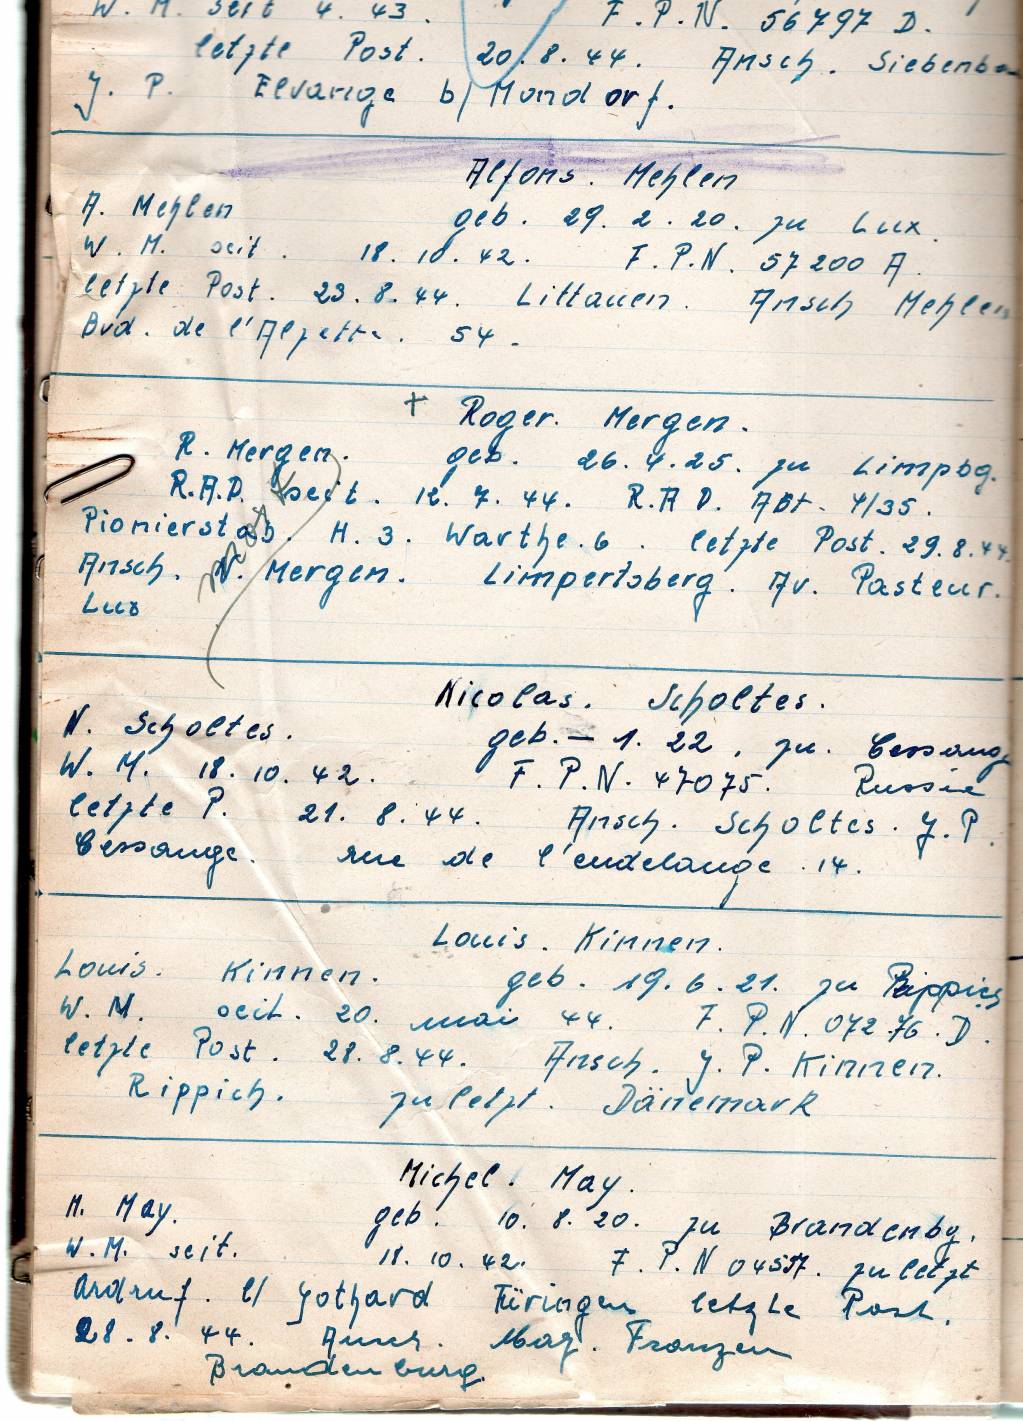 W. M. seit 4. 43. F.P.N. 56797 D.
letzte Post. 20.8.44. Ansch. Siebenb
J. P. Elvange b/ Mondorf.
Alfons. Mehlen
A. Mehlen geb. 29. 2. 20. zu Lux.
W. M. seit. 18. 10. 42. F.P.N. 57200 A.
letzte Post. 23.8.44. Littauen. Ansch Mehlen
Bvd. de l'Alzette. 54.
+ Roger. Mergen.
R. Mergen. geb. 26.4.25. zu Limpbg.
R.A.D. seit. 12. 7. 44. R.A D. ABt. 4/35.
Pionierstab. H. 3. Warthe. 6. letzte Post. 29.8.44.
Ansch. N. Mergen. Limpertsberg. Av. Pasteur.
Lux
Nicolas. Scholtes.
N. Scholtes. geb. – 1. 22. zu. Cessange
W. M. 18. 10. 42. F.P.N. 47075. Russie
letzte P. 21. 8. 44. Ansch. Scholtes. J. P.
Cessange. rue de l'endelange. 14.
Louis. Kinnen.
Louis. Kinnen. geb. 19. 6. 21. zu Rippich
W. M. seit. 20. mai 44. F. P. N. 07276. D.
letzte Post. 28. 8. 44. Ansch. J. P. Kinnen.
Rippich. zuletzt. Dänemark
Michel. May.
M. May. geb. 10. 8. 20. zu Brandenbg.
W. M. seit. 18. 10. 42. F. P. N zuletzt
Ardruf. b/ Gothard Türingen letzte Post.
28. 8. 44. Ansch. May. Franzen
Brandenburg.